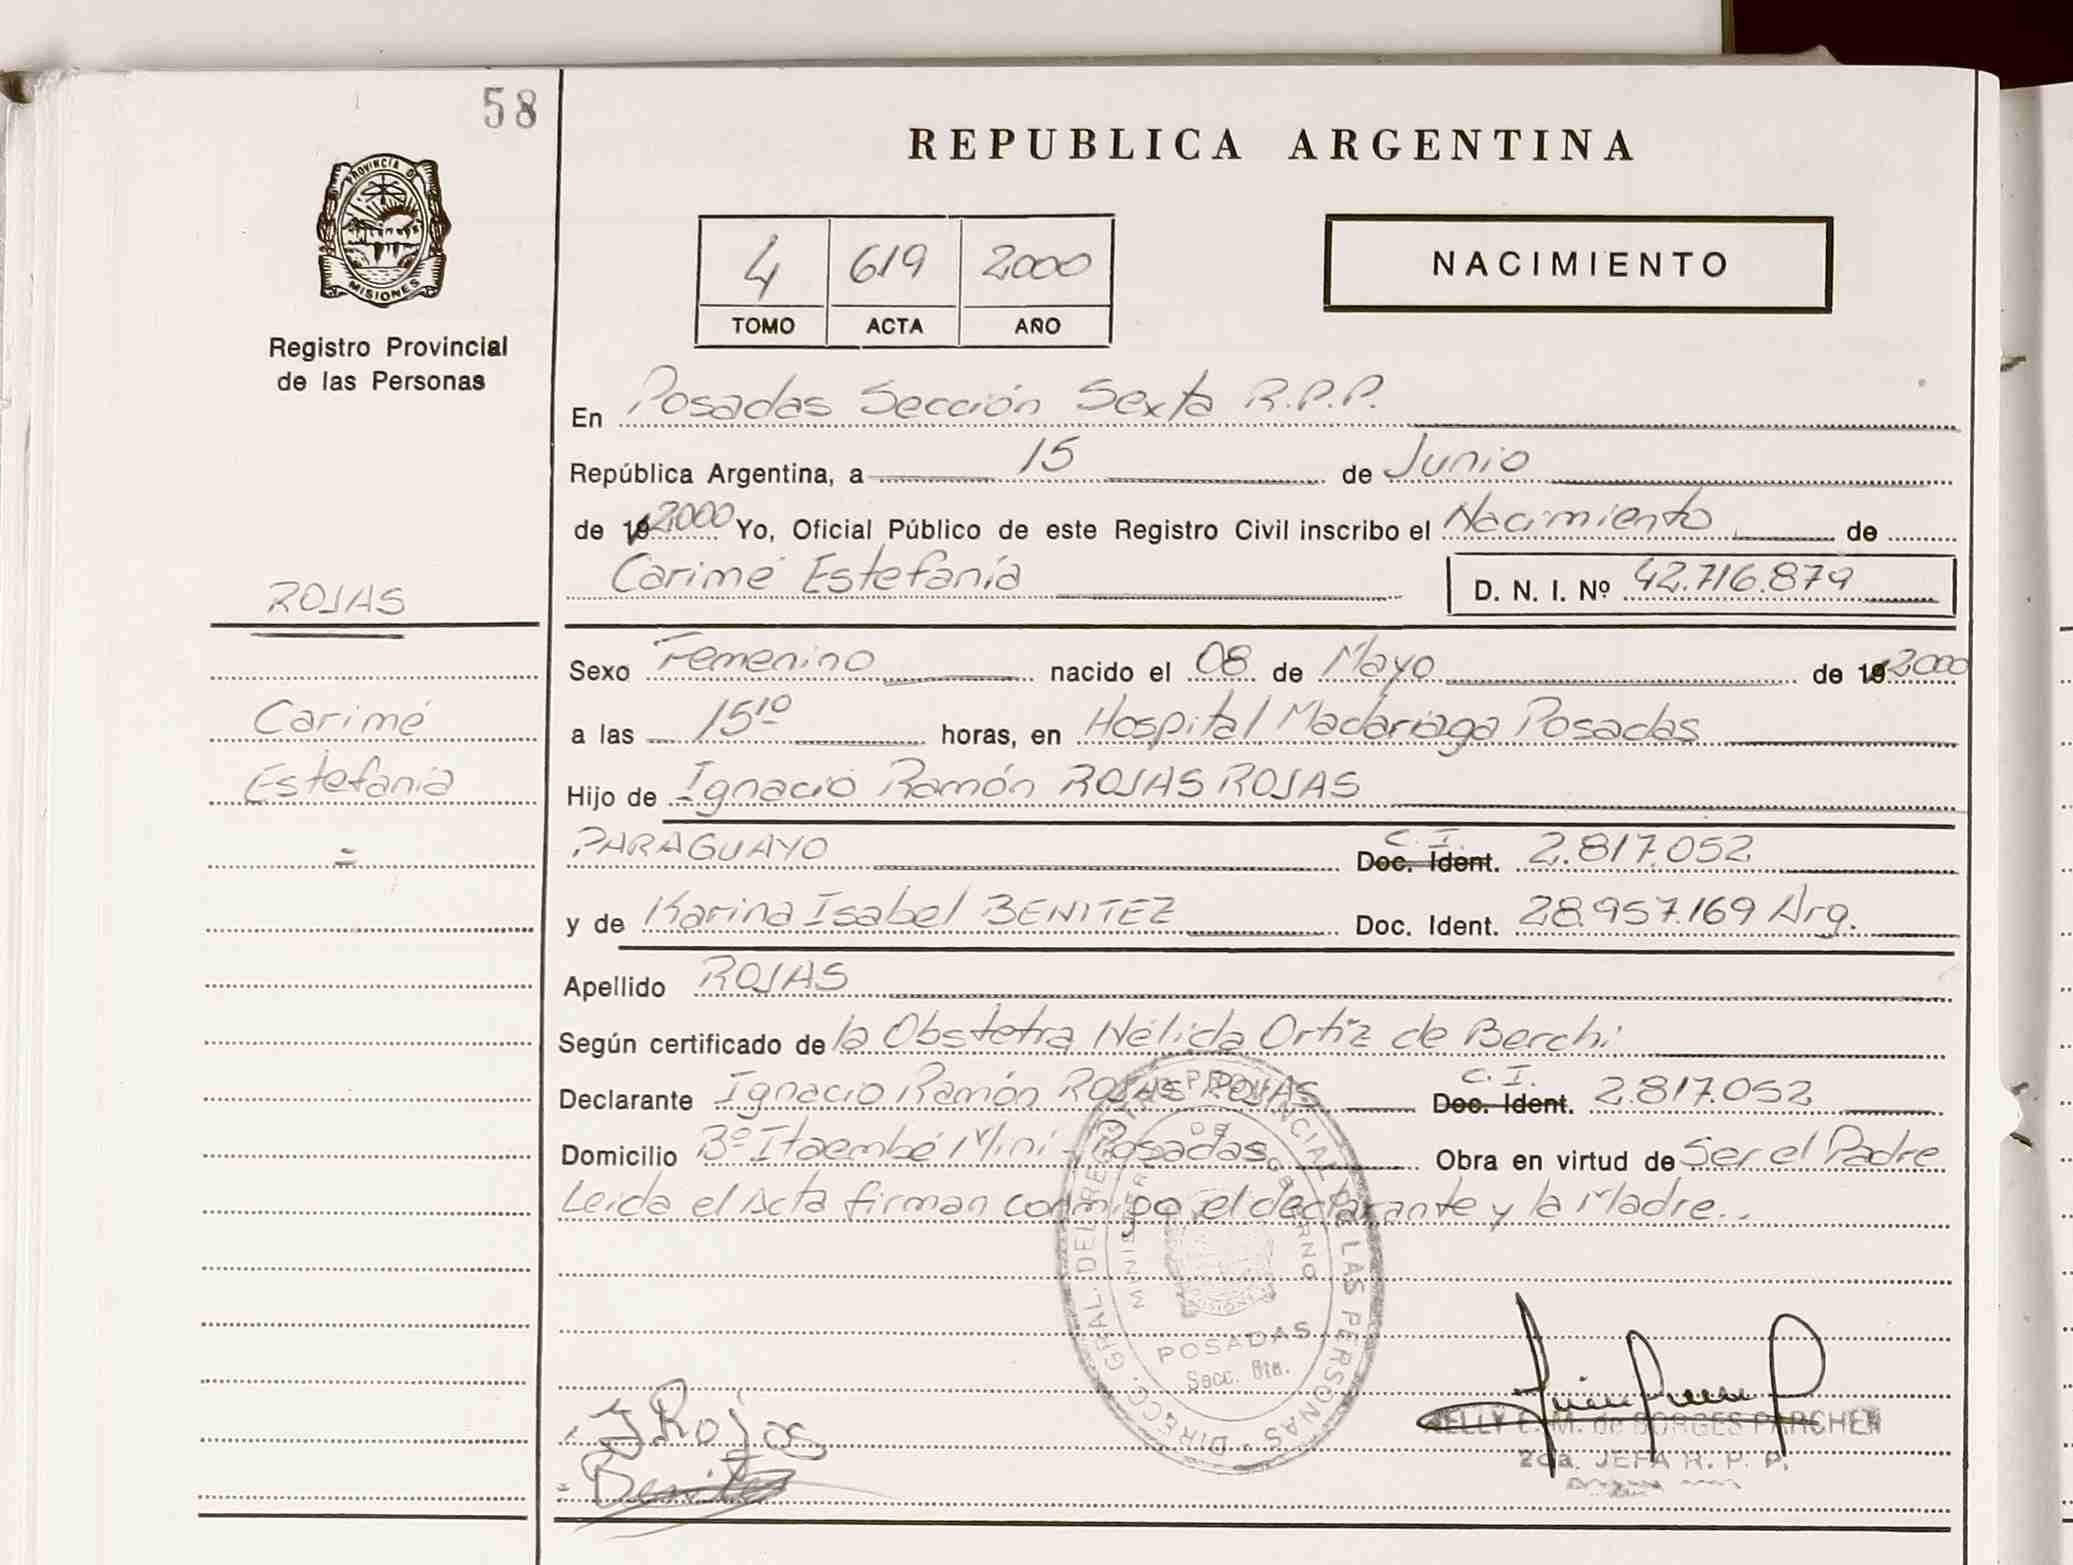 58
REPUBLICA ARGENTINA
PROVINCIA DE
MISIONES
Registro Provincial
de las Personas
4 619 2000
TOMO ACTA AÑO
NACIMIENTO
En Posadas Sección Sexta R.P.P.
República Argentina, a 15 de Junio
de 19 2000 Yo, Oficial Público de este Registro Civil inscribo el Nacimiento de
Carimé Estefanía D. N. I. Nº 42.716.879
ROJAS
Sexo Femenino nacido el 08 de Mayo de 19 2000
Carimé
a las 15¹⁰ horas, en Hospital Madariaga Posadas
Estefanía
Hijo de Ignacio Ramón ROJAS ROJAS
=
PARAGUAYO Doc. Ident. C.I. 2.817.052
y de Karina Isabel BENITEZ Doc. Ident. 28.957.169 Arg.
Apellido ROJAS
Según certificado de la Obstetra Nélida Ortiz de Berchi
Declarante Ignacio Ramón ROJAS ROJAS Doc. Ident. C.I. 2.817.052
Domicilio Bº Itaembé Mini - Posadas Obra en virtud de Ser el Padre
Leída el Acta firman conmigo el declarante y la Madre..
DIRECC. GRAL. DEL REGISTRO PROVINCIAL DE LAS PERSONAS
MINISTERIO DE GOBIERNO
MISIONES
POSADAS
Secc. 6ta.
I Rojas
Benitez
NELLY E. M. de BORGES PARCHEN
2da. JEFA R. P. P.